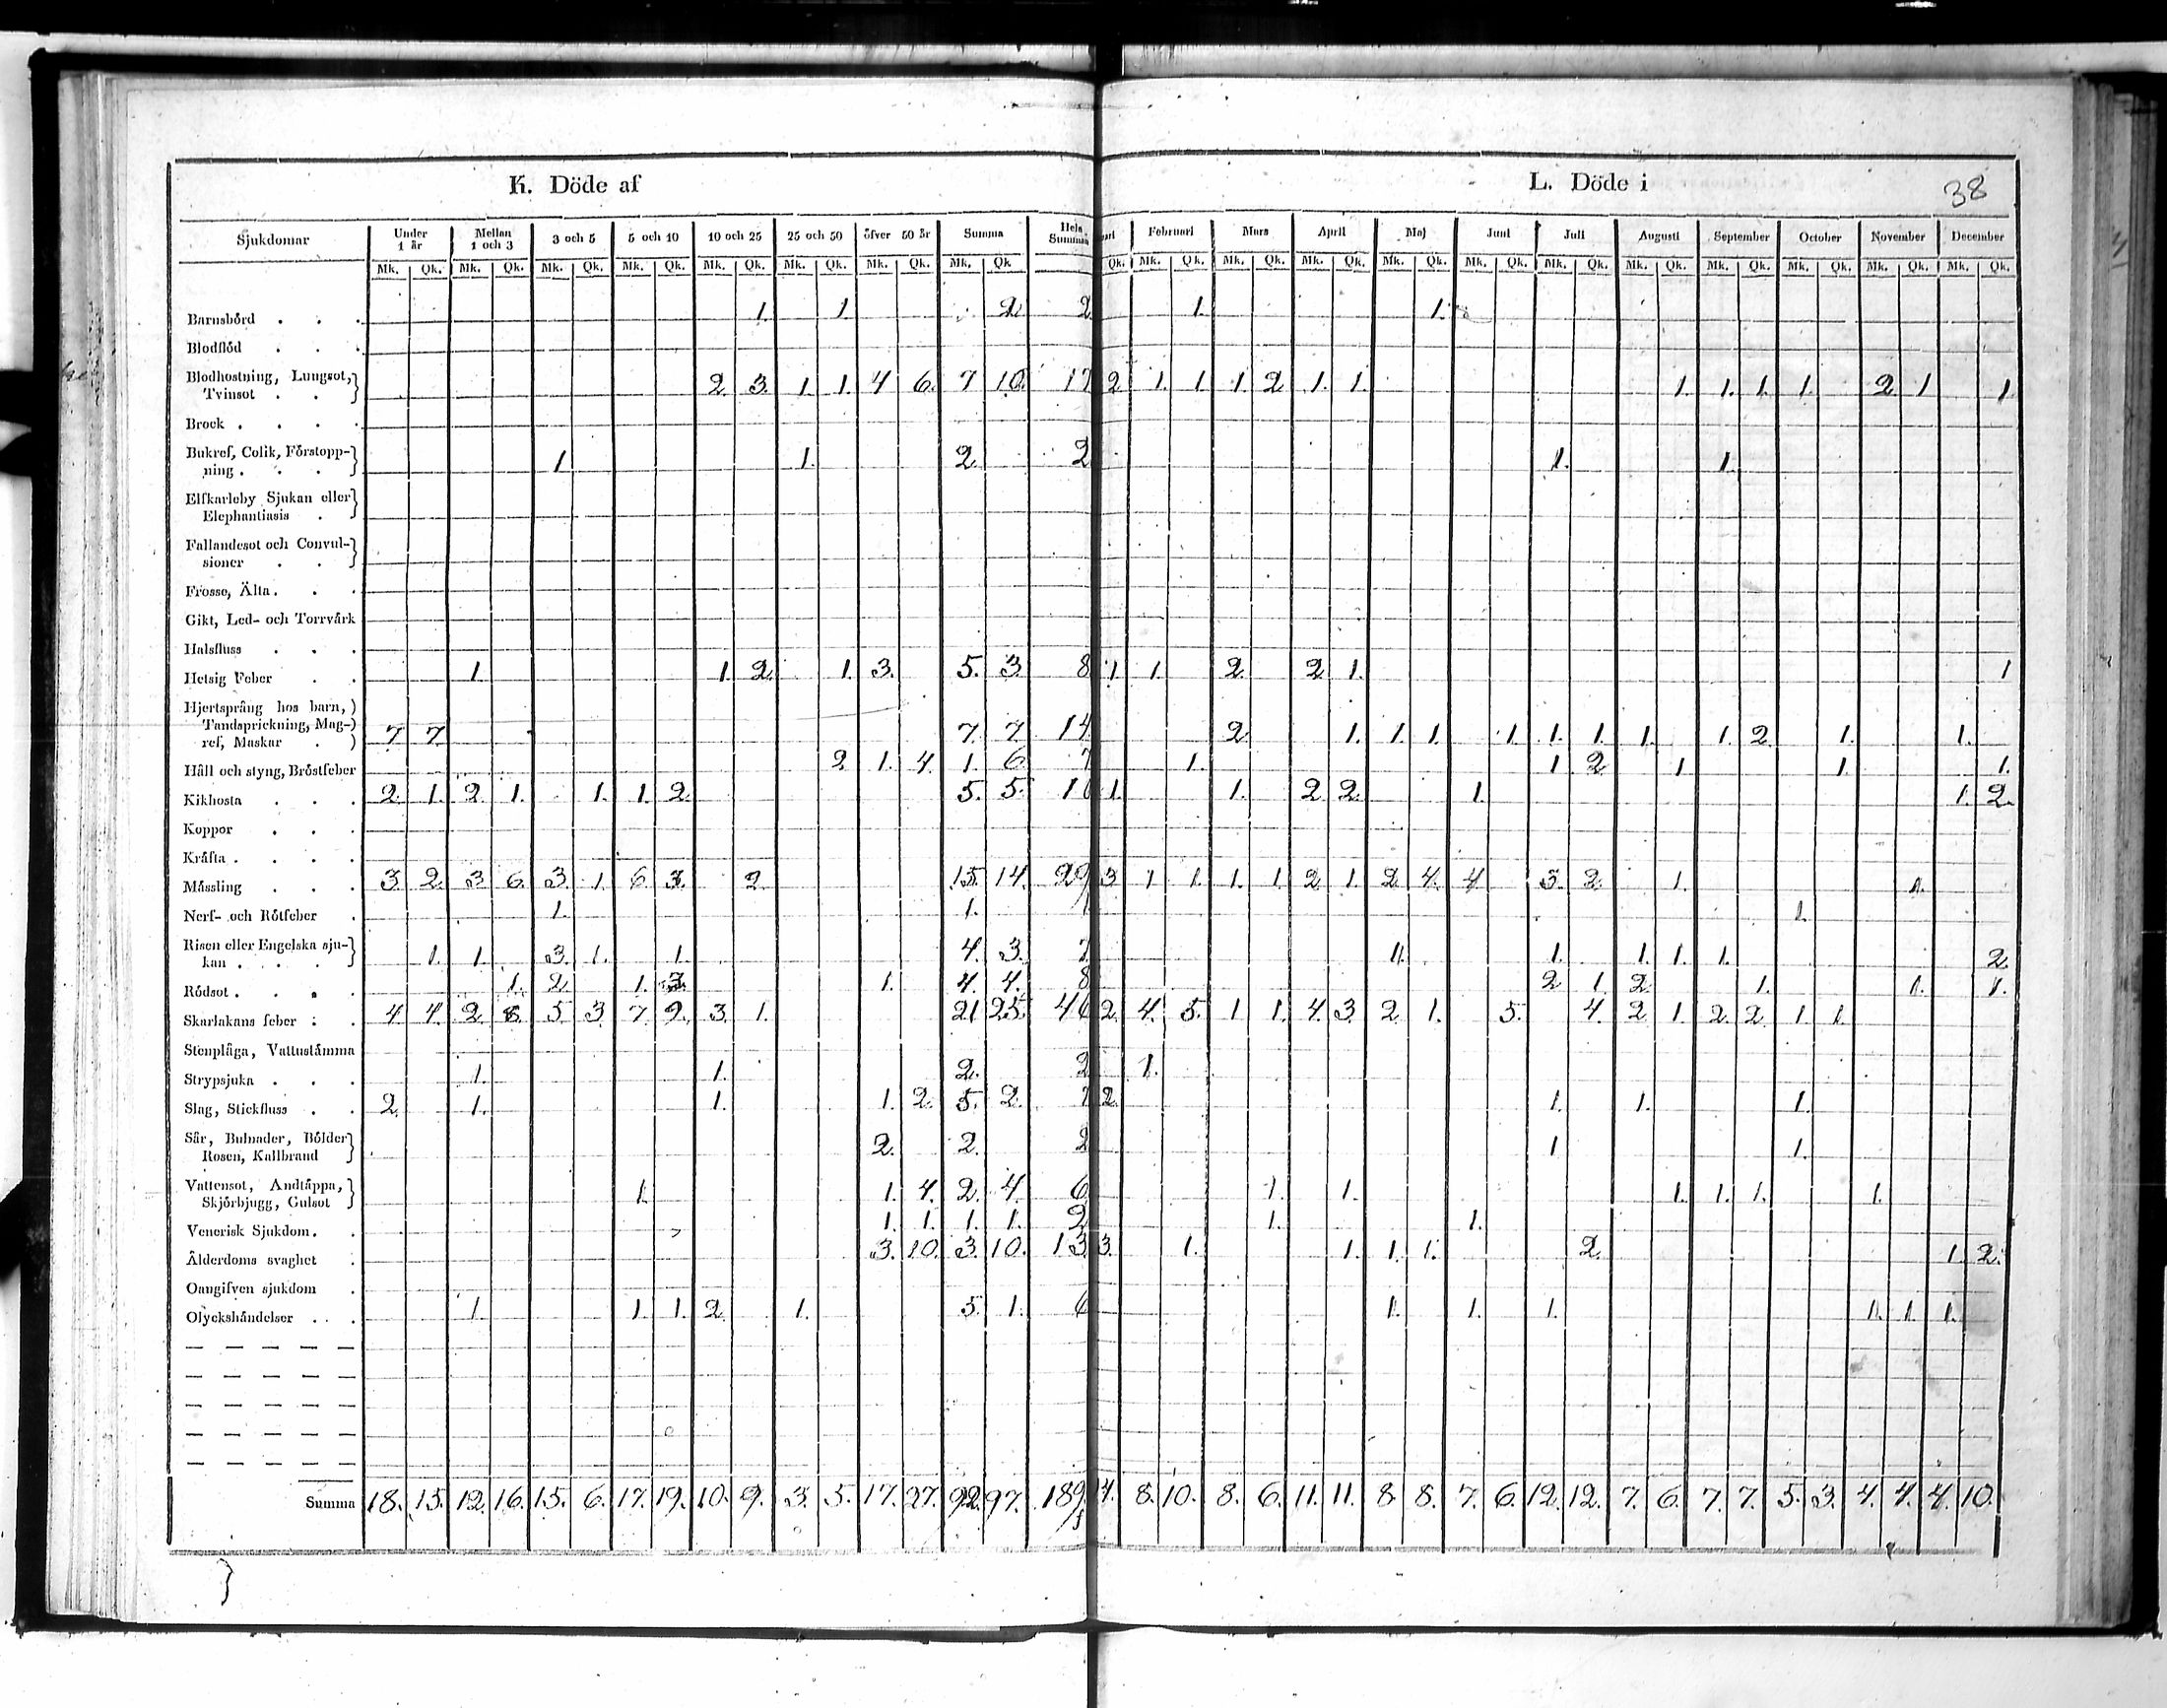 K. Döde af
L. Döde i
38
Sjukdomar Under 1 år Mellan 1 och 3 3 och 5 5 och 10 10 och 25 25 och 50 öfver 50 år Summa Hela Summan ari Februari Mars April Maj Juni Juli Augusti September October November December
Mk. Qk. Mk. Qk. Mk. Qk. Mk. Qk. Mk. Qk. Mk. Qk. Mk. Qk. Mk. Qk. Qk. Mk. Qk. Mk. Qk. Mk. Qk. Mk. Qk. Mk. Qk. Mk. Qk. Mk. Qk. Mk. Qk. Mk. Qk. Mk. Qk. Mk. Qk.
Barnsbörd . . . 1. 1. 2. 2 1. 1.
Blodflöd . . .
Blodhostning, Lungsot,
Tvinsot . . } 2. 3. 1. 1. 4 6. 7 10. 17 2 1. 1 1. 2 1. 1. 1. 1. 1. 1. 2 1 1.
Brock . . . .
Bukref, Colik, Förstopp-
ning . . . } 1 1. 2. 2 1. 1.
Elfkarleby Sjukan eller
Elephantiasis . }
Fallandesot och Convul-
sioner . . }
Frosse, Älta . . .
Gikt, Led- och Torrvärk
Halsfluss . . .
Hetsig Feber . . 1. 1. 2. 1. 3. 5. 3. 8 1. 1. 2. 2 1. 1
Hjertsprång hos barn, )
Tandsprickning, Mag-)
ref, Maskar . ) 7. 7. 7. 7. 14 2. 1. 1. 1. 1. 1. 1. 1. 1. 2. 1. 1.
Håll och styng, Bröstfeber 2 1. 4. 1. 6. 7 1. 1 2. 1 1. 1.
Kikhosta . . . 2. 1. 2. 1. 1. 1. 2. 5. 5. 10 1. 1. 2. 2. 1. 1. 2.
Koppor . . .
Kräfta . . . .
Mässling . . . 3. 2. 3 6. 3. 1. 6. 3. 2. 15. 14. 29 3 1 1. 1. 1. 2 1. 2 4. 4 3. 2. 1. 1.
Nerf- och Rötfeber . 1. 1. 1 1.
Risen eller Engelska sju-
kan . . . } 1. 1. 3. 1. 1. 4. 3. 7 1. 1. 1. 1. 1. 2.
Rödsot . . . . 1. 2. 1. 3. 1. 4. 4. 8 2 1. 2. 1. 1. 1.
Skarlakans feber . . 4. 4. 2. 8. 5. 3. 7. 9. 3. 1. 21 25. 46 2. 4. 5. 1 1. 4. 3. 2. 1. 5. 4. 2. 1. 2. 2. 1. 1.
Stenplåga, Vattustämma
Strypsjuka . . . 1. 1. 2. 2 1.
Slag, Stickfluss . . 2. 1. 1. 1. 2. 5. 2. 7 2. 1. 1. 1.
Sår, Bulnader, Bölder
Rosen, Kallbrand } 2. 2. 2 1 1.
Vattensot, Andtäppa,
Skjörbjugg, Gulsot } 1. 1. 4. 2. 4. 6 1. 1. 1. 1. 1. 1.
Venerisk Sjukdom . . 1. 1. 1. 1. 2 1. 1.
Ålderdoms svaghet . 3. 10. 3. 10. 13 3. 1. 1. 1. 1. 2. 1. 2.
Oangifven sjukdom .
Olyckshändelser . . . 1. 1. 1. 2. 1. 5. 1. 6 1. 1. 1. 1. 1. 1.
Summa 18. 15. 12. 16. 15. 6. 17. 19. 10. 9. 3. 5. 17. 27. 92. 97. 189. 4. 8. 10. 8. 6. 11. 11. 8. 8. 7. 6. 12. 12. 7. 6. 7. 7. 5. 3. 4. 4. 4. 10.